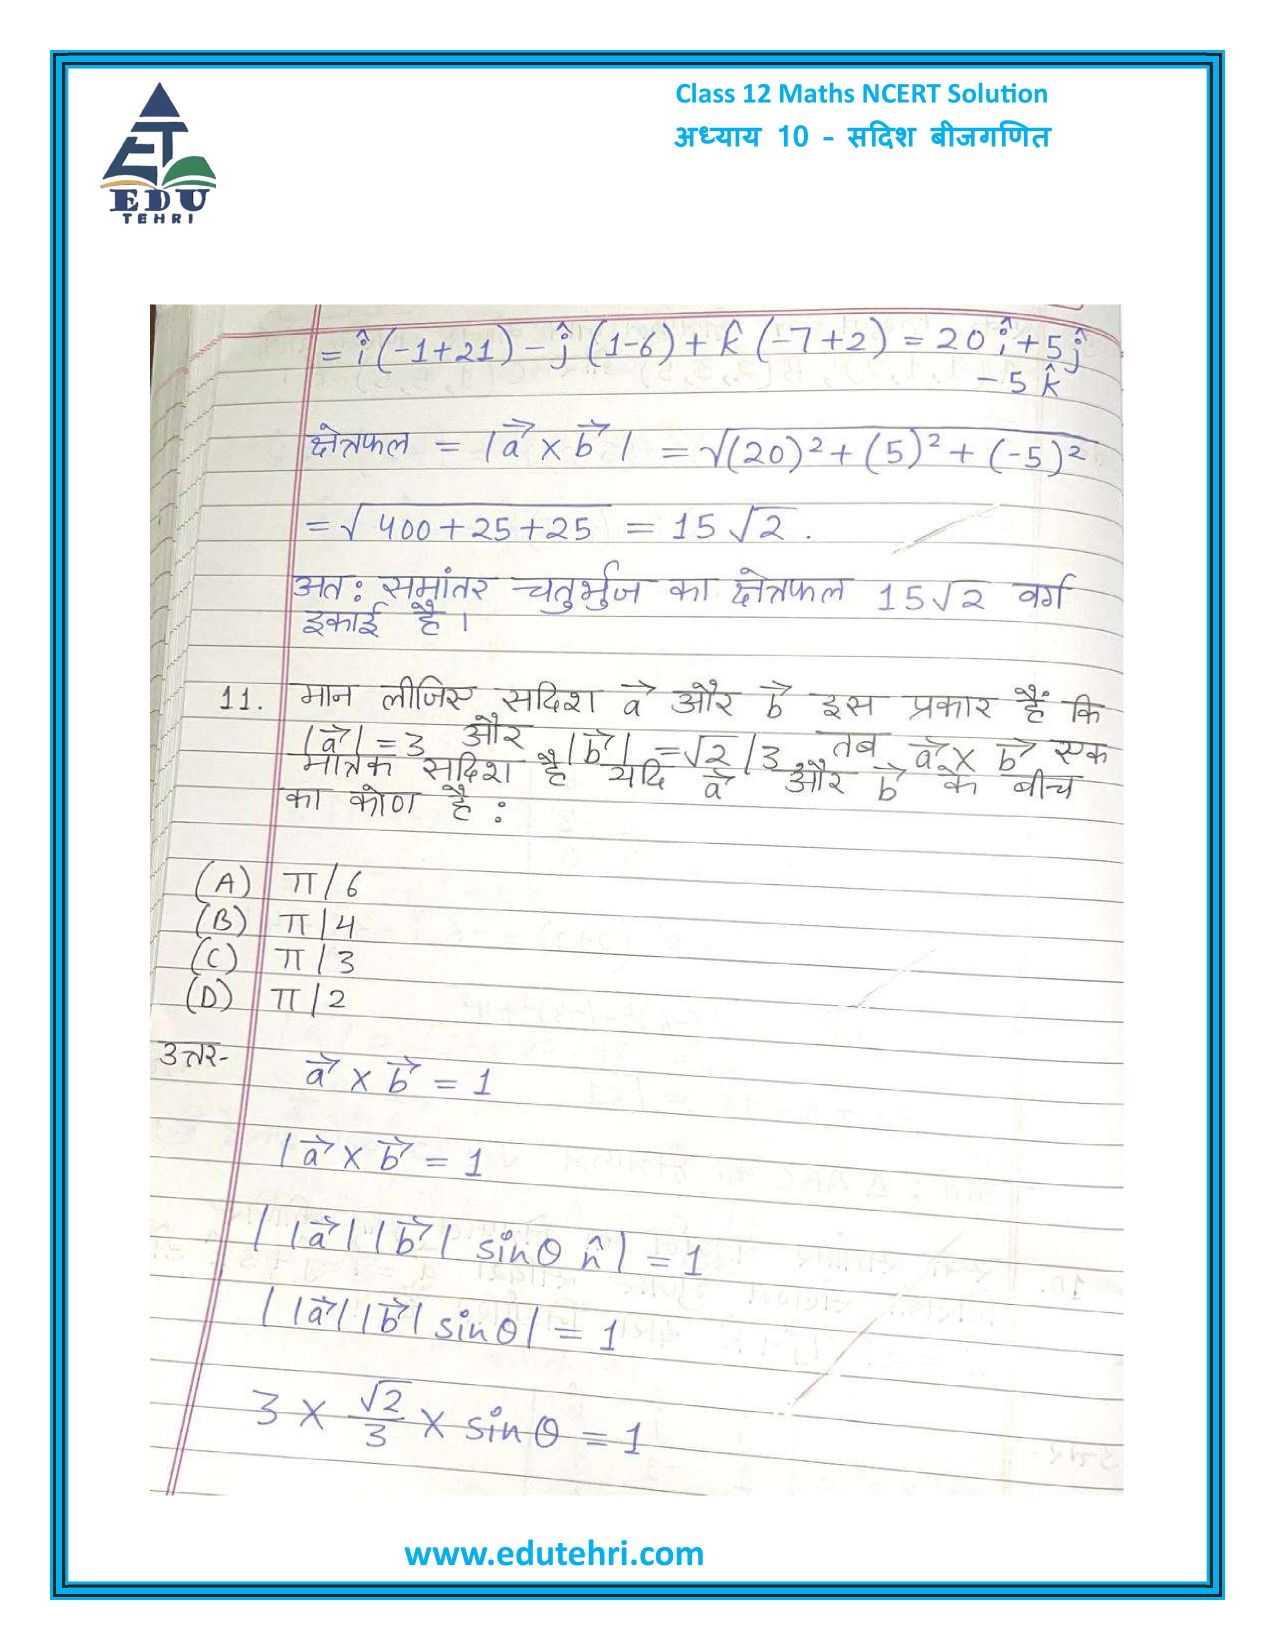 Class 12 Maths NCERT Solution
अध्याय 10 - सदिश बीजगणित
EDU
TEHRI
= î(-1+21) - ĵ (1-6) + k̂ (-7+2) = 20î + 5ĵ
- 5 k̂
क्षेत्रफल = |a⃗ × b⃗| = √(20)² + (5)² + (-5)²
= √400+25+25 = 15√2.
अत: समांतर चतुर्भुज का क्षेत्रफल 15√2 वर्ग
इकाई है।
11. मान लीजिए सदिश a⃗ और b⃗ इस प्रकार हैं कि
|a⃗| = 3 और |b⃗| = √2/3, तब a⃗ × b⃗ एक
मात्रक सदिश है यदि a⃗ और b⃗ के बीच
का कोण है :
(A) π/6
(B) π/4
(C) π/3
(D) π/2
उत्तर- a⃗ × b⃗ = 1
|a⃗ × b⃗ = 1
||a⃗||b⃗| sinθ n̂| = 1
||a⃗||b⃗| sinθ| = 1
3 × √2/3 × sinθ = 1
www.edutehri.com